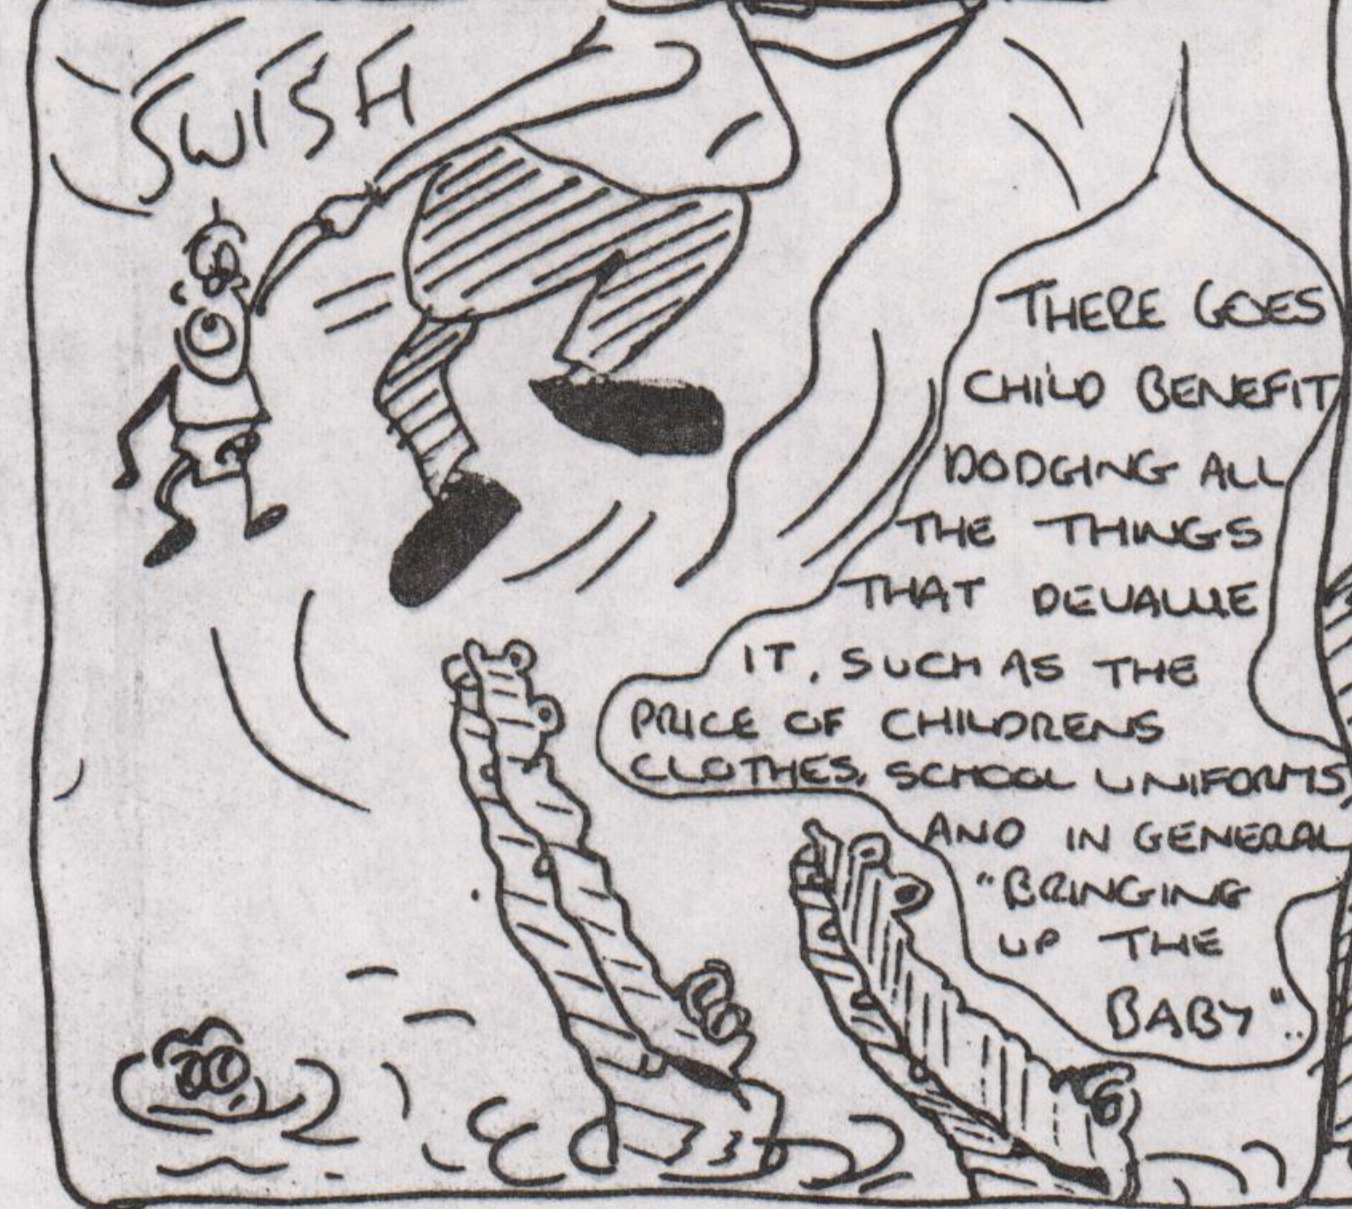 SWISH
THERE GOES
CHILD BENEFIT
DODGING ALL
THE THINGS
THAT DEVALUE
IT, SUCH AS THE
PRICE OF CHILDRENS
CLOTHES, SCHOOL UNIFORMS,
AND IN GENERAL
"BRINGING
UP THE
BABY"..